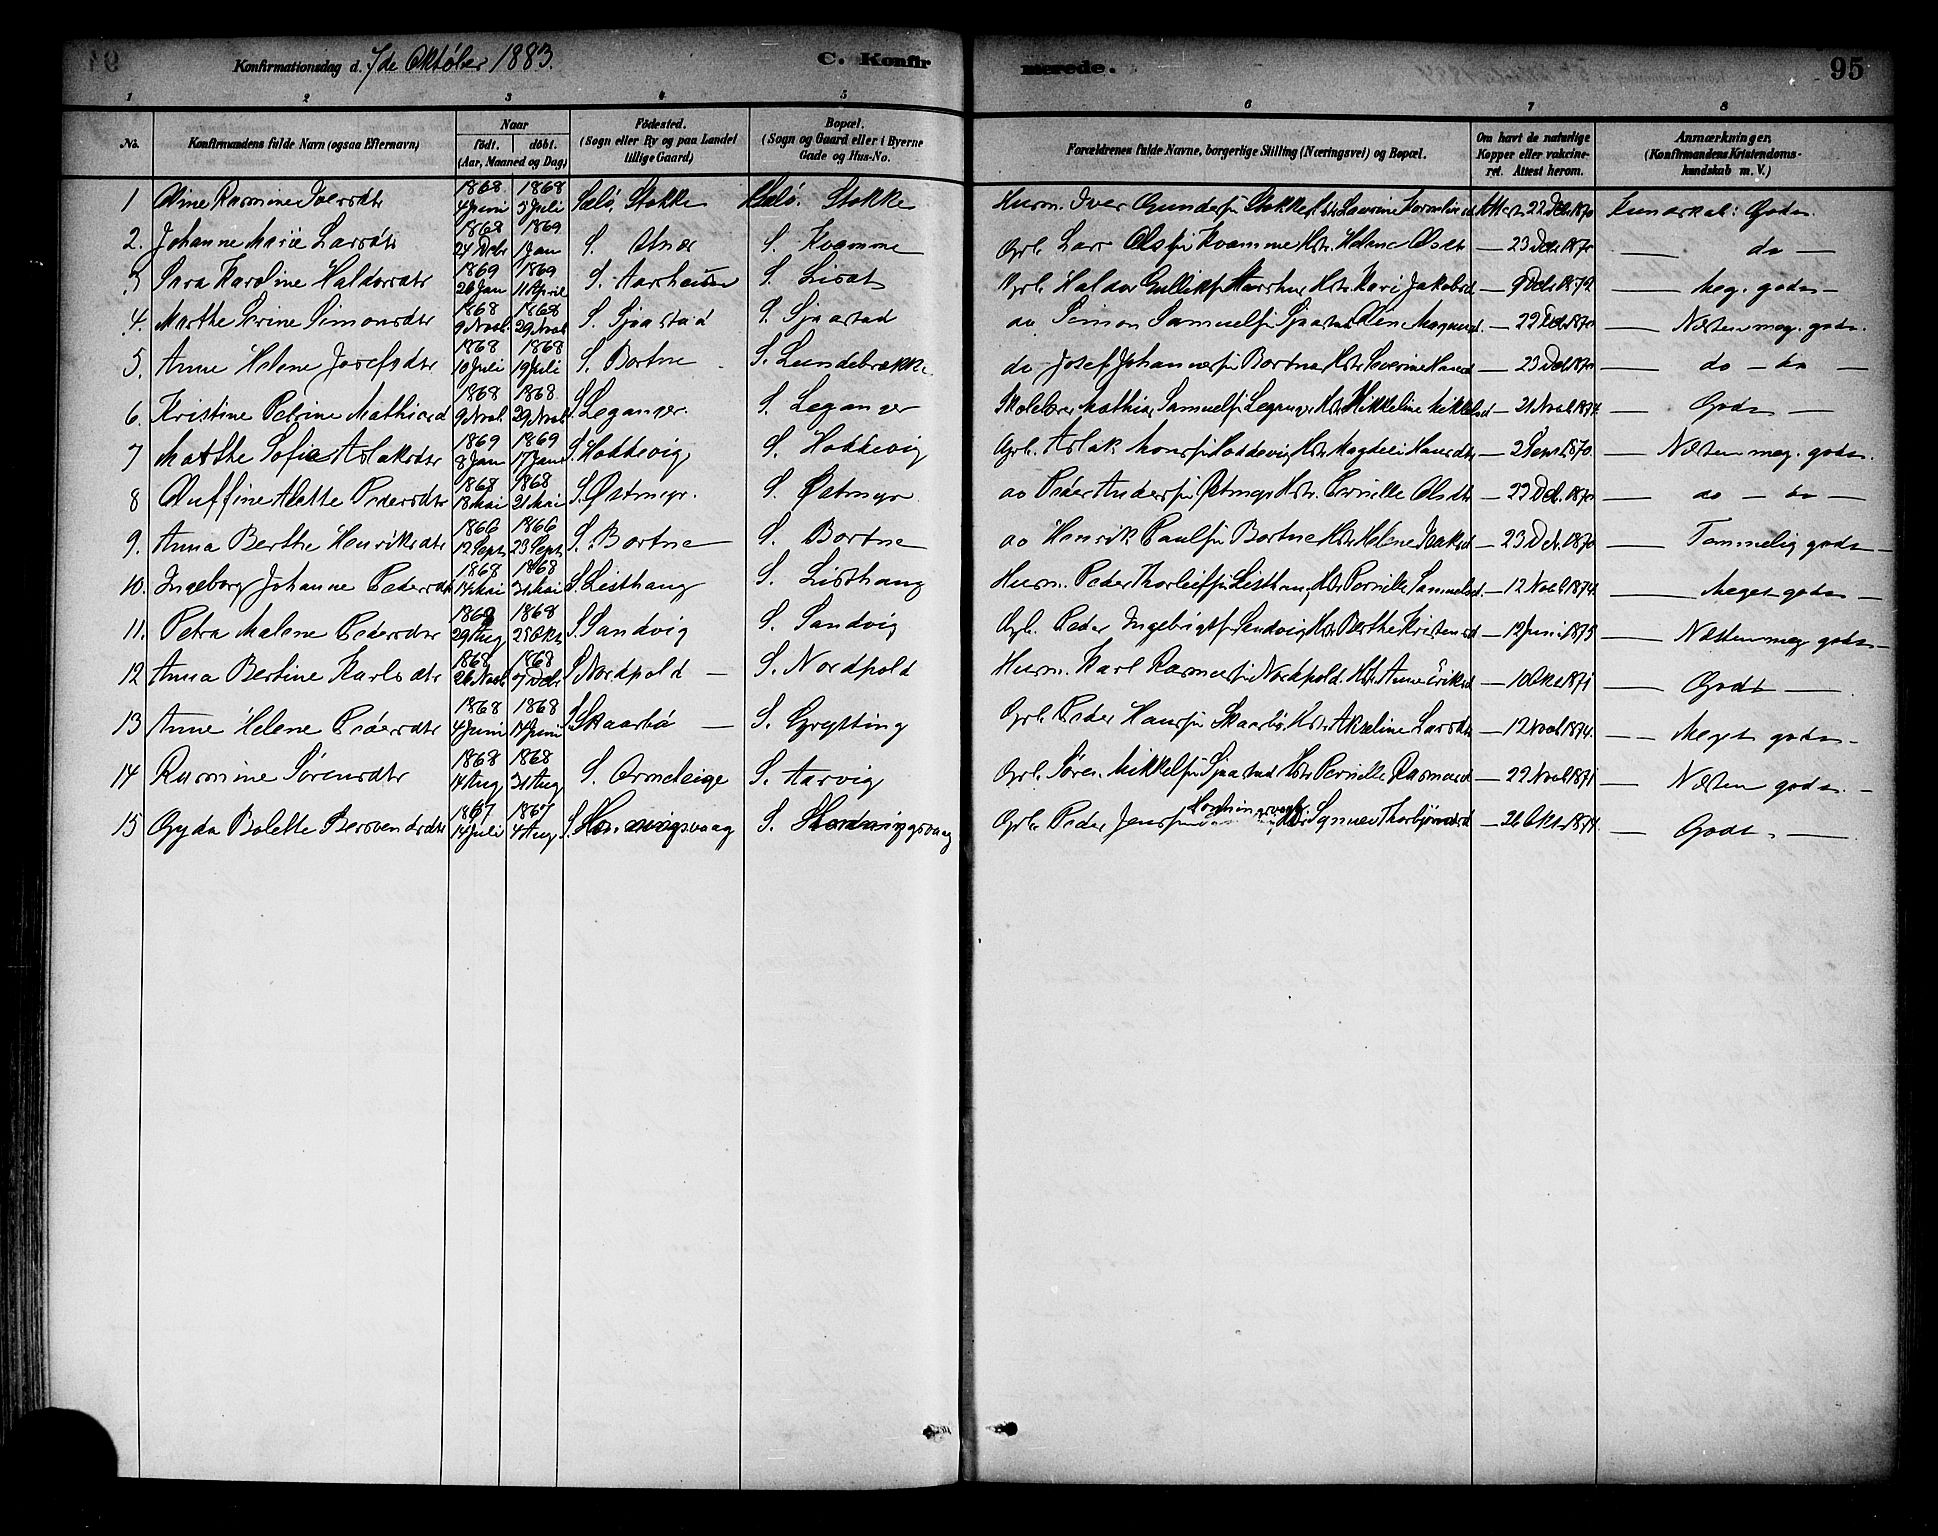 Konfirmationsdag d. 7de Oktober 1883. C. Konfir merede. 95
1 2 3 4 5 6 7 8
No. Konfirmandens fulde Navn (ogsaa Efternavn) Naar født. døbt. (Aar, Maaned og Dag) Fødested. (Sogn eller By og paa Landet tillige Gaard) Bopæl. (Sogn og Gaard eller i Byerne Gade og Hus-No. Forældrenes fulde Navne, borgerlige Stilling (Næringsvei) og Bopæl. Om havt de naturlige Kopper eller vaccineret. Attest herom. Anmærkninger, (Konfirmandens Kristendomskundskab m. V.)
1 Oline Rasmine Iversdtr 1868 4 Juni 1868 5 Juli Selø, Stokke Selø. Stokke Husm. Iver Gundersen Stokke Attest 22 Deb 1870 Kundskab: Godt
2. Johanne Marie Larsdtr 1868 24 Debr 1869 1 Jan S. S. Kvamme Grb. Lars Olsen Kvamme Hstr Helene Olsdtr — 23 Deb 1870 — do —
3 Sara Karoline Haldorsdtr 1869 26 Jan 1869 11 April S. Aarheim S. Liset Grb. Haldor Kari Jakobsd — Deb 1872 — Meg. godt —
4. Marthe Serine Simonsdtr 1868 9 Novb. 1868 29 Novb S. Sjaastad S. Sjaastad do Simon Samuelsen Sjaastad — 22 Deb 1870 — Næsten meg. godt.
5. Anne Helene Josefsdtr 1868 10 Juli 1868 19 Juli S. Bortne S. Lundebrekke do Josef Johannessen Bortne Hstr Severine — 23 Deb 1870 — do — do —
6 Kristine Petrine Mathiasd 1868 9 Novb. 1868 29 Novb S. Leganger. S. Leganger Skolelærer Mathias Samuelsen Leganger Hstr Mikkeline Mikkelsd — 21 Novb 1874. — Godt —
7 Marthe Sofie Aslaksdtr 1869 8 Jan 1869 17 Jan S. Hoddevig S. Hoddevig Grb. Aslak Hoddevig Hstr Magdeli Hansdtr — 2 Sept 1870. — Næsten meg. godt.
8 Oluffine Alette Pedersdtr 1868 13 Mai 1868 21 Mai S. Østmyr. S. Østmyr do Peder Andersen Østmyr Hstr Pernille Olsdtr — 22 Deb. 1870 — do — do —
9. Anna Berthe Henriksdtr 1866 12 Sept 1866 23 Sept S. Bortne S. Bortne do Henrik Paulsen Bortne Hstr Helene — 23 Deb. 1870 — Temmelig godt —
10. Ingeborg Johanne Pedersdtr 1868 14 Mai 1868 31 Mai S. Listhaug S. Listhaug Husm. Peder Thorleifsen Listhaug Hstr Pernille Samuelsd. — 12 Novb 1874. — Meget godt —
11. Petra Malene Pedersdtr 1868 29 Aug 1868 25 Okt S. Sandvig S. Sandvig Grb. Peder Ingebrigtsen Sandvig Hstr Berthe Kristensd — 12 Juni 1875 — Næsten meg godt —
12 Anna Bertine Karlsdtr 1868 26 Novb 1868 7 Deb S. Nordpold — S. Nordpold Husm. Karl Rasmussen Nordpold. Hstr Anne Eriksd — 1 Okt 1871 — Godt —
13 Anne Helene Pedersdtr 1868 4 Juni 1868 14 Juni S. Skaarbø — S. Grytting Grb. Peder Hansen Skaarbø. Hstr Akseline Larsdtr — 12 Novb 1874. — Meget godt —
14 Rasmine Sørensdtr 1868 14 Aug 1868 31 Aug S. Ormeleige S. Aarvig Grb. Søren Mikkelsen Sjaastad Hstr Pernille Rasmusd — 22 Novb 1871 — Næsten godt. —
15 Gyda Bolette 1867 14 Juli 1867 4 Aug S. Honningsvaag S. Honningsvaag Grb. Peder Jensen Honningsvaag. Hstr Thorbjørnsd — 26 Okt 1874 — Godt —